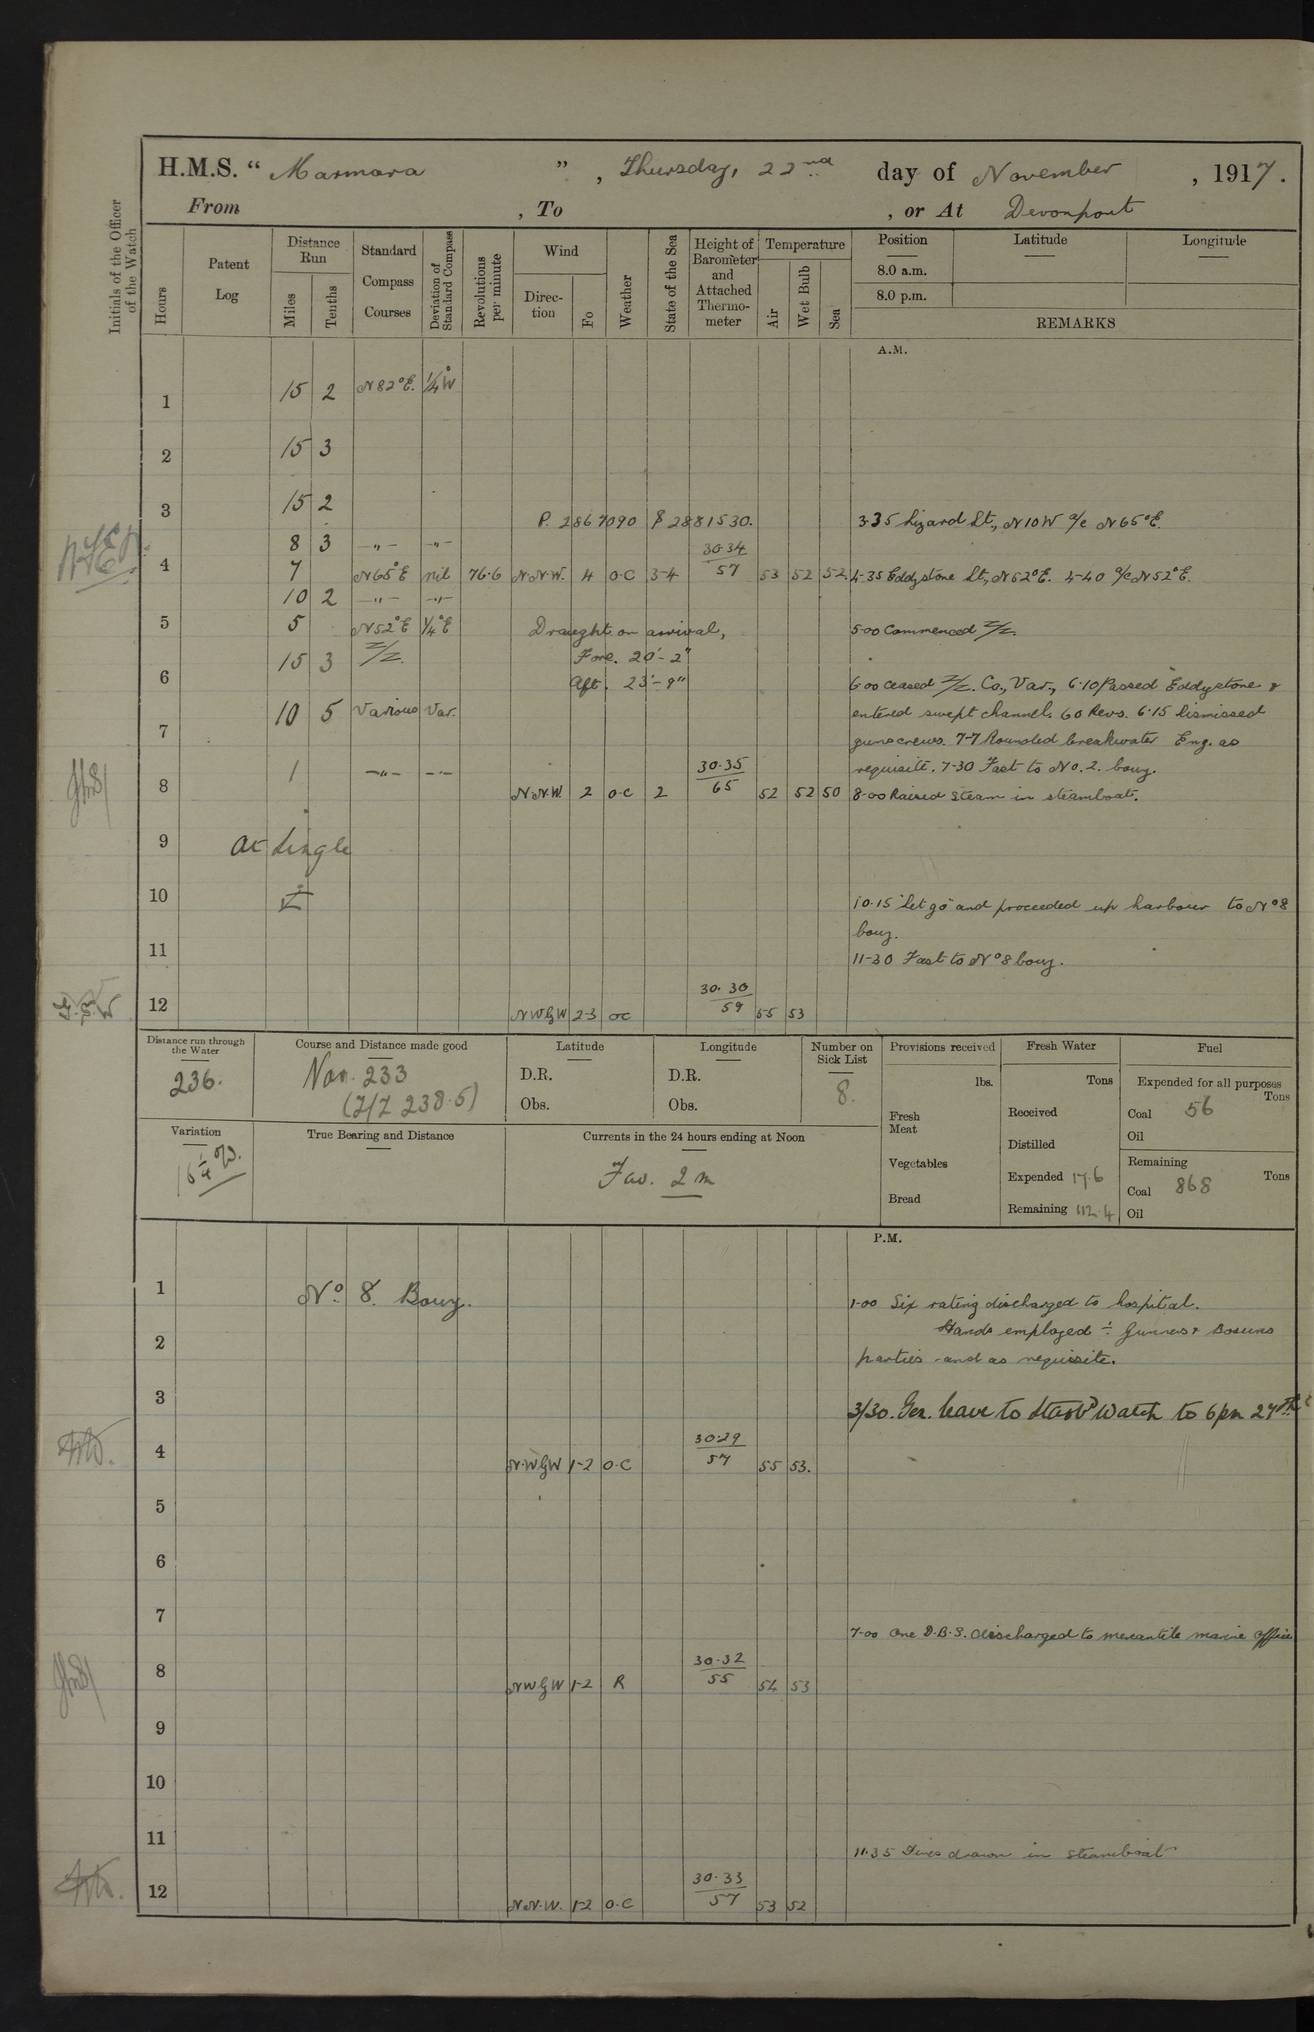 H.M.S. “ Marmara ” , Thursday, 22nd day of November , 1917.
From , To , or At Devonport
Initials of the Officer of the Watch
Hours
Patent Log
Distance Run
Miles
Tenths
Standard Compass Courses
Deviation of Standard Compass
Revolutions per minute
Wind
Direc- tion
Fo
Weather
State of the Sea
Height of Barometer and Attached Thermo- meter
Temperature
Air
Wet Bulb
Sea
Position
8.0 a.m.
8.0 p.m.
Latitude
Longitude
REMARKS
A.M.
1 15 2 N82°E. 1/4°W
2 15 3
3 15 2
P. 2867090 S 2881530. 3·35 Lizard Lt., N10W a/c N65°E.
8 3 –"– –"– 30·34
4 7 N65°E nil 76·6 N.N.W. 4 O·C 3-4 57 53 52 52 4-35 Eddystone Lt., N52°E. 4-40 a/c N52°E.
10 2 –"– –"–
5 5 N52°E 1/4°E Draught on arrival, 5·00 Commenced Z/Z.
15 3 Z/Z. Fore. 20'-2"
6 Aft. 23'-9" 6·00 Ceased Z/Z. Co., Var., 6·10 Passed Eddystone &
10 5 Various Var. entered swept channel. 60 Revs. 6·15 Dismissed
7 guns crews. 7-7 Rounded breakwater Eng. as
1 –"– –"– 30·35 requisite. 7-30 Fast to No. 2. bouy.
8 N.N.W. 2 O·C 2 65 52 52 50 8·00 Raised steam in steamboat.
9 At Single
10 10·15 "Let go" and proceeded up harbour to No 8
bouy.
11 11-30 Fast to No 8 bouy.
30·30
12 NWGW 2-3 OC 59 55 53
Distance run through the Water
236.
Course and Distance made good
Nan. 233
(Z/Z 238·5)
Latitude
D.R.
Obs.
Longitude
D.R.
Obs.
Number on Sick List
8.
Provisions received
lbs.
Fresh Meat
Vegetables
Bread
Fresh Water
Tons
Received
Distilled
Expended 17·6
Remaining 112·4
Fuel
Expended for all purposes
Tons
Coal 56
Oil
Remaining
Tons
Coal 868
Oil
Variation
16 1/4 W.
True Bearing and Distance
Currents in the 24 hours ending at Noon
Fav. 2 m
P.M.
1 No 8. Bouy. 1·00 Six rating discharged to hospital.
Hands employed ÷ Gunners & Bosuns
2
parties and as requisite.
3 3/30. Gen. leave to Starbd Watch to 6pm 27th
30·29
4 N.W.GW 1-2 O·C 57 55 53.
5
6
7
7·00 One D.B.S. discharged to mercantile marine office
30·32
8 NWGW 1-2 R 55 54 53
9
10
11
11·35 Fires drawn in steamboat
30·33
12 N.N.W. 1-2 O·C 57 53 52